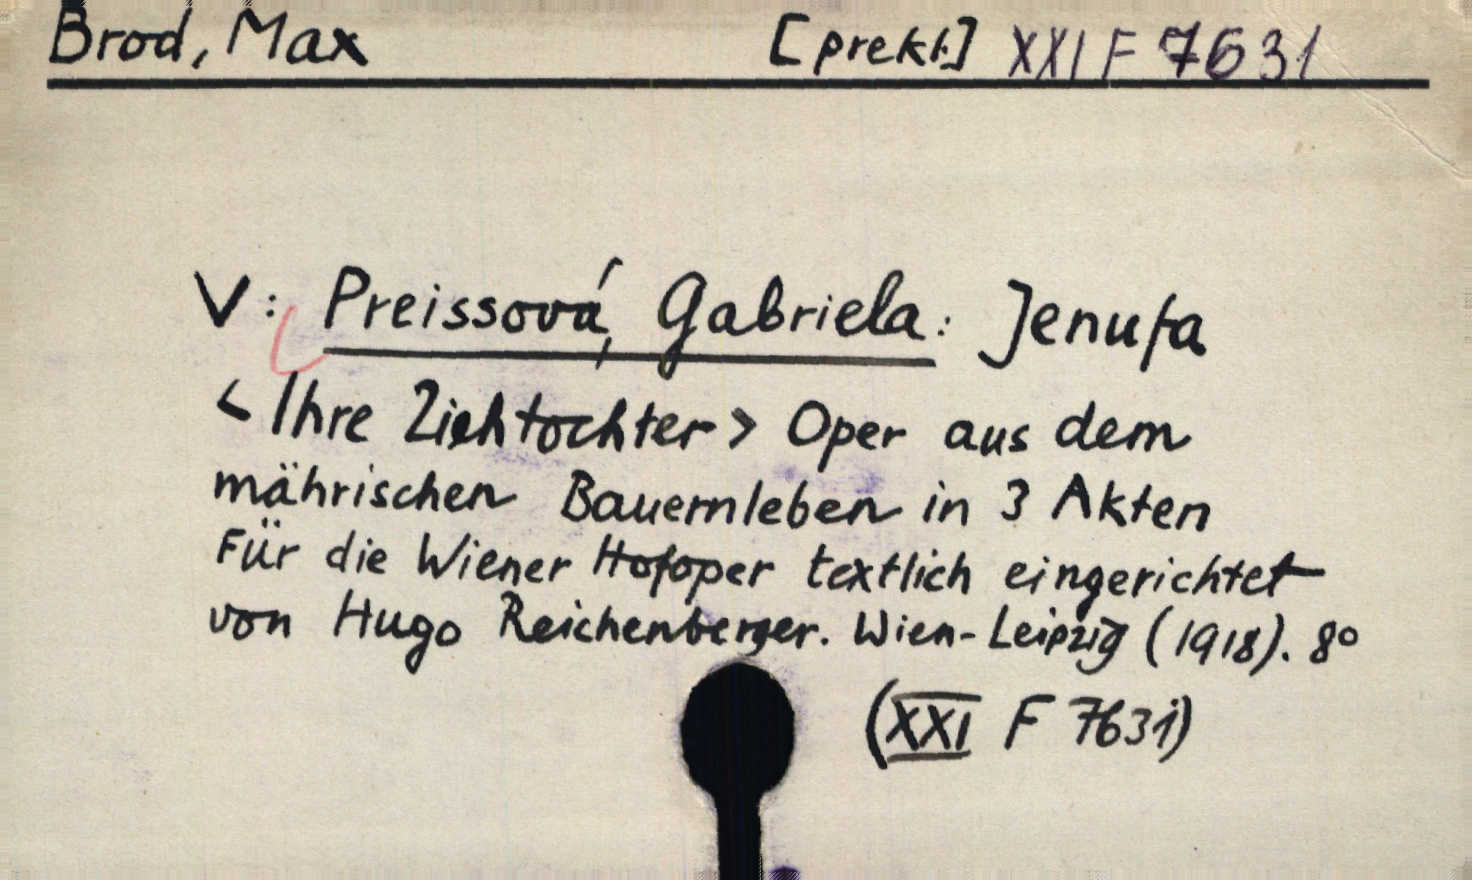 Brod, Max [prekl.] XXI F 7631
V: Preissová, Gabriela: Jenufa
<Ihre Ziehtochter> Oper aus dem
mährischen Bauernleben in 3 Akten
Für die Wiener Hofoper textlich eingerichtet
von Hugo Reichenberger. Wien-Leipzig (1918). 8°
(XXI F 7631)